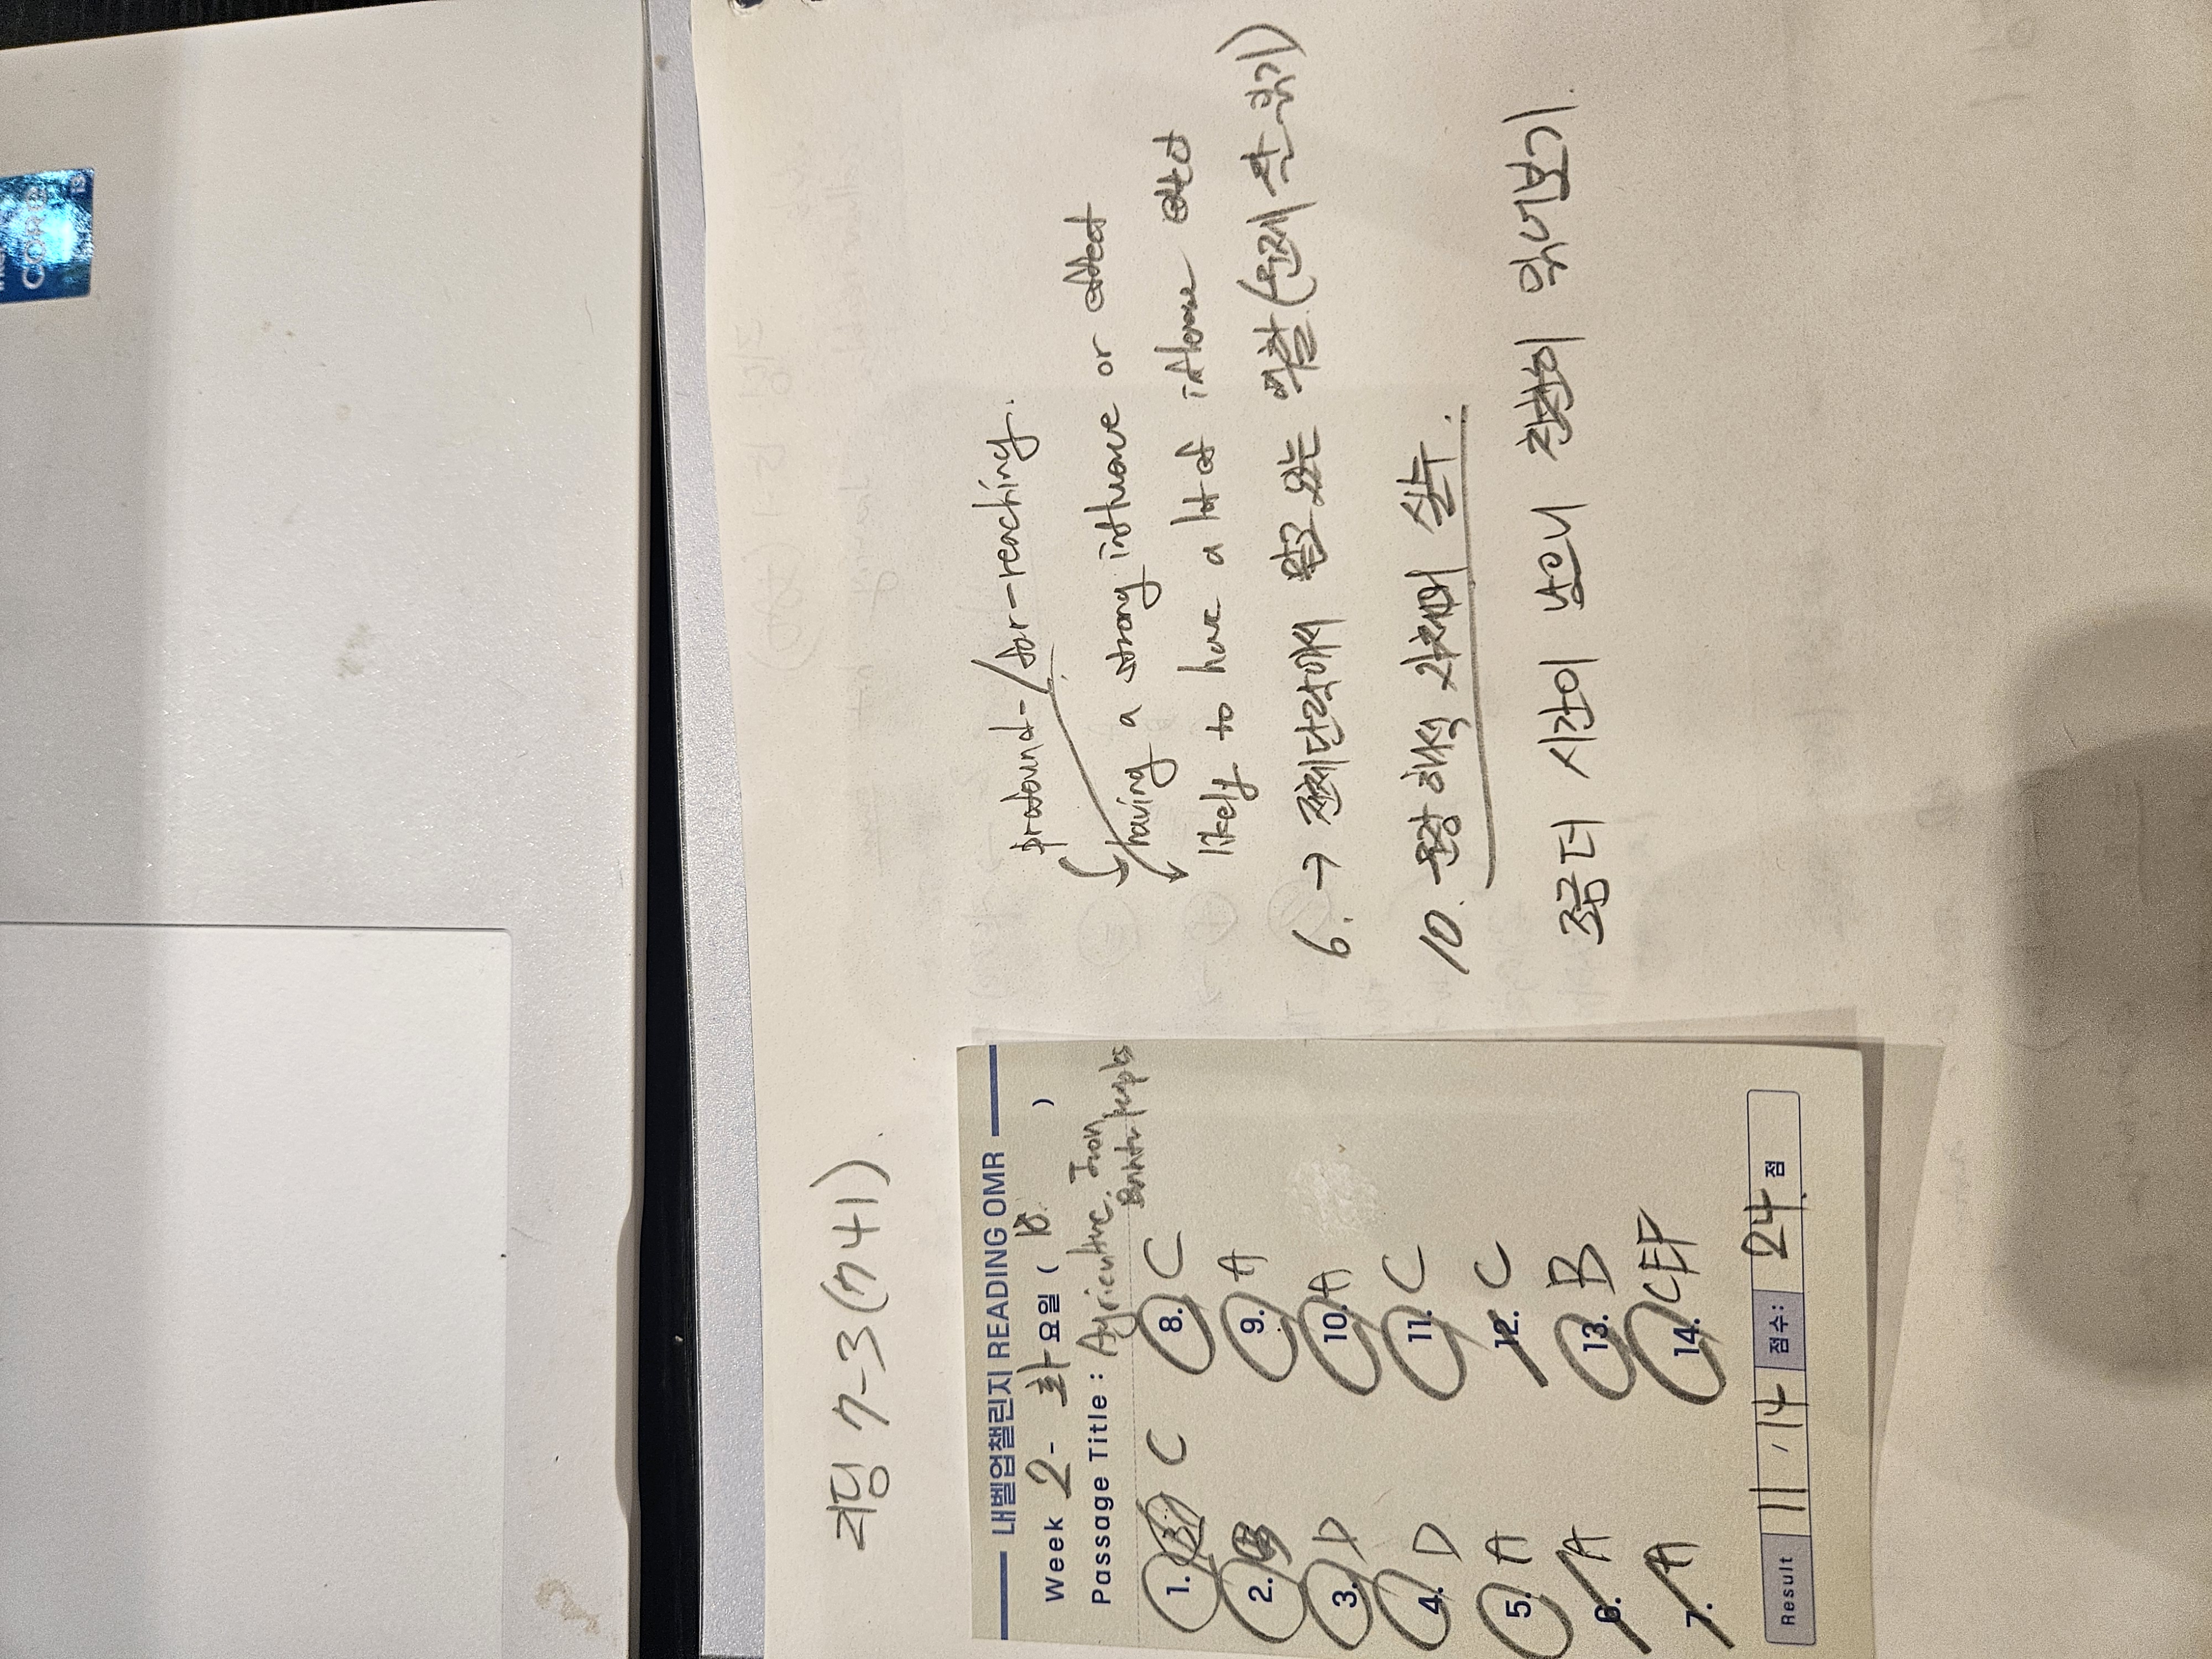 CORE
i3
리딩 7-3 (741)
내벨업챌린지 READING OMR
Week 2 - 화요일 ( )
Passage Title : Agriculture, Iron
Bantu peoples
1. C
2. B
3. D
4. D
5. A
6. A
7. A
8. C
9. A
10. A
11. C
12. C
13. B
14. CEF
Result 11 / 14 점수: 24 점
profound - far-reaching.
having a strong influence or effect
likely to have a lot of influence effect
6. → 전체단락에서 하고 있는 역할 (문제 잘 읽기)
10. 문장 해석 자체에 실수.
조금 더 시간이 남으니 천천히 읽어보기.